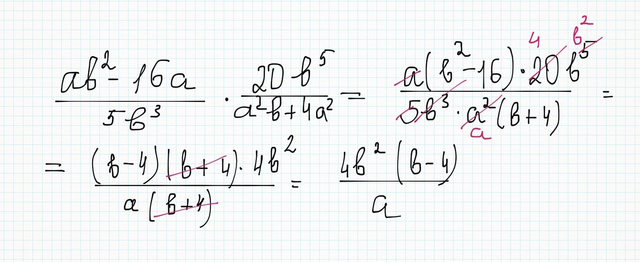 (ab² - 16a)/(5b³) · (20b⁵)/(a²b + 4a²) = (a(b² - 16) · 20b⁵)/(5b³ · a²(b + 4)) =
4 b² a
= ((b - 4)(b + 4) · 4b²)/(a(b + 4)) = (4b²(b - 4))/a